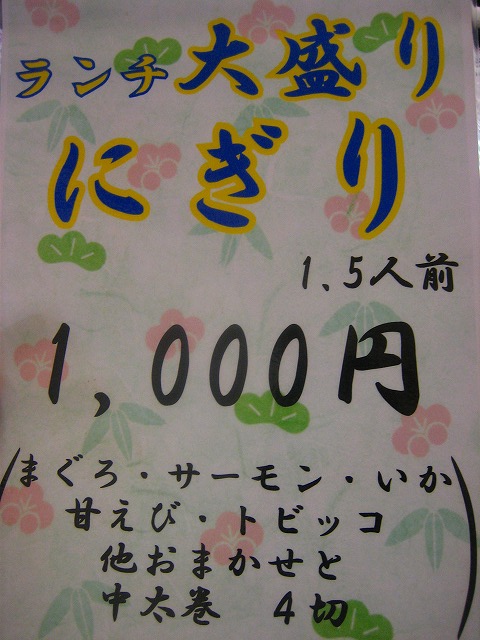 ランチ大盛り
にぎり
1.5人前
1,000円
(まぐろ・サーモン・いか
甘えび・トビッコ
他おまかせと
中太巻 4切)